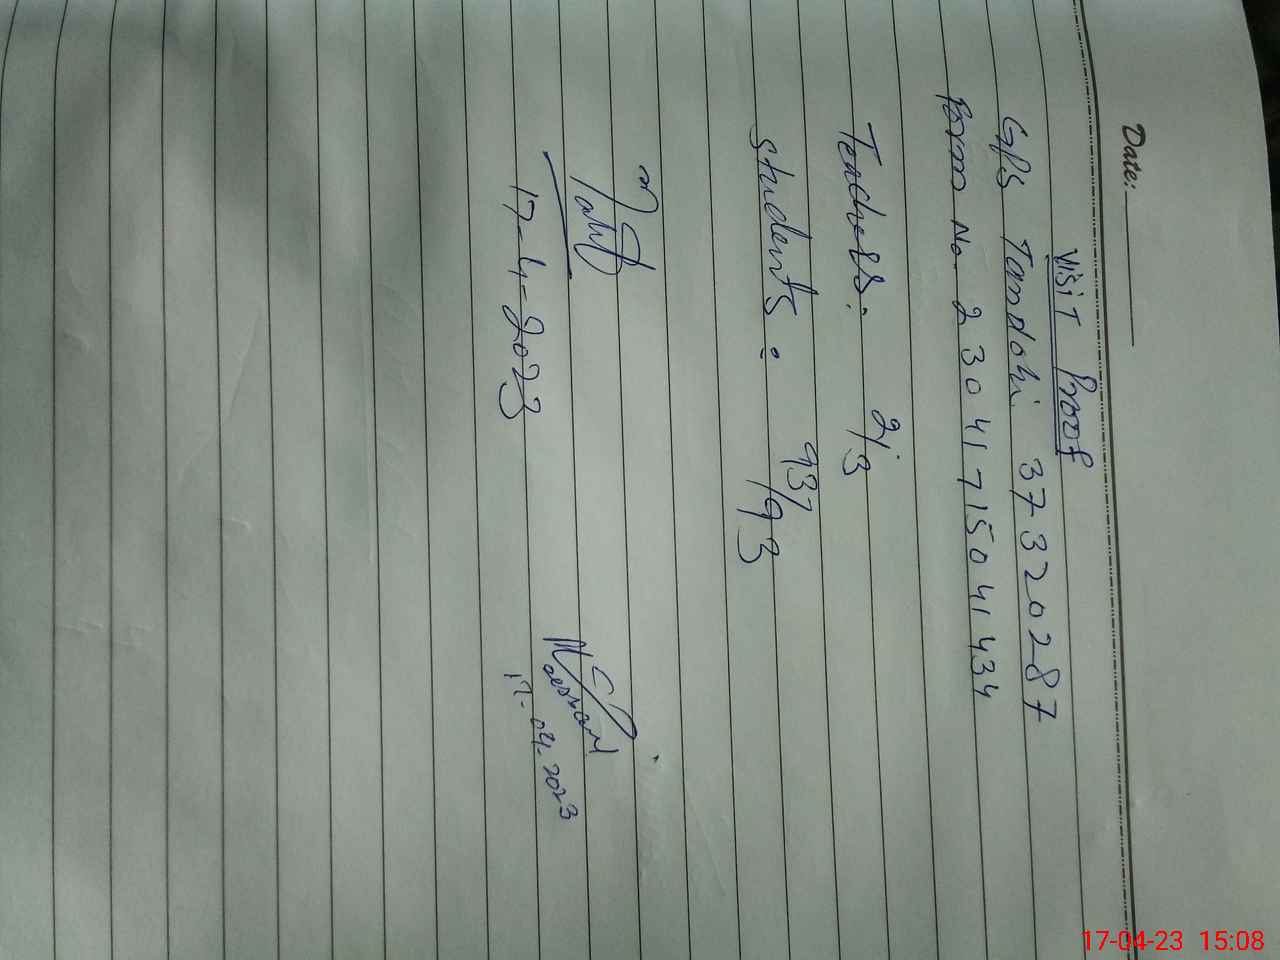 Date:
Visit Proof
GPS Tandohi 37320287
Form No. 23041715041434
Teachers: 2/3
Students: 93/93
17-4-2023
17-04-2023
17-04-23 15:08